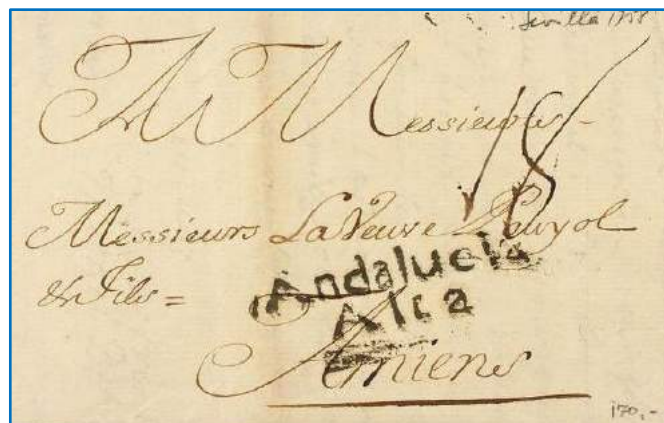 Sevilla 1758
A Messieurs -
18
Messieurs La Veuve
& Fils =
Andalucia
Alta
Amiens
170,-